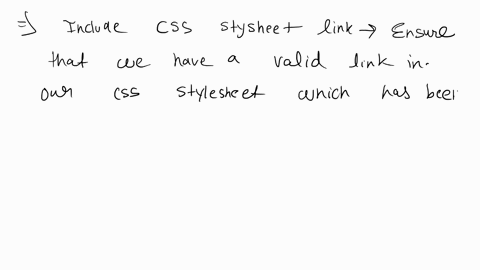 ⇒ Include CSS stysheet link → Ensure
that we have a valid link in.
our css stylesheet which has been